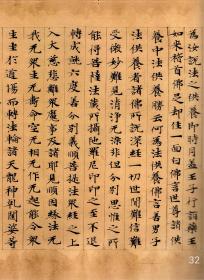 為汝說法之供養即時月蓋王子行詣藥王
如來稽首佛足却住一面白佛言世尊諸供
養中法供養勝云何為法供養佛言善男子
法供養者諸佛所說深經一切世間難信難
受微妙難見清淨无染非但分別思惟之所
能得菩薩法藏所攝陀羅尼印印之至不退
轉成就六度善分別義順菩提法眾經之上
入大慈悲離眾魔事及諸邪見順因緣法无
我无眾生无壽命空无相无作无起能令眾
生坐於道場而轉法輪諸天龍神乾闥婆等
32